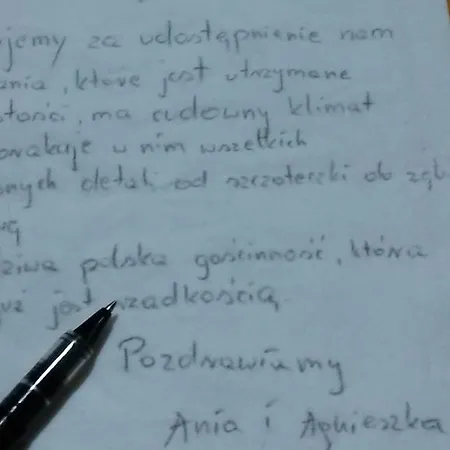 jemy za udostępnienie nam
ania, które jest utrzymane
tości, ma cudowny klimat
orakuje w nim wszelkich
onych detali od szczoteczki do zęb
wą
ziwa polska gościnność, która
uż jest rzadkością.
Pozdrawiamy
Ania i Agnieszka